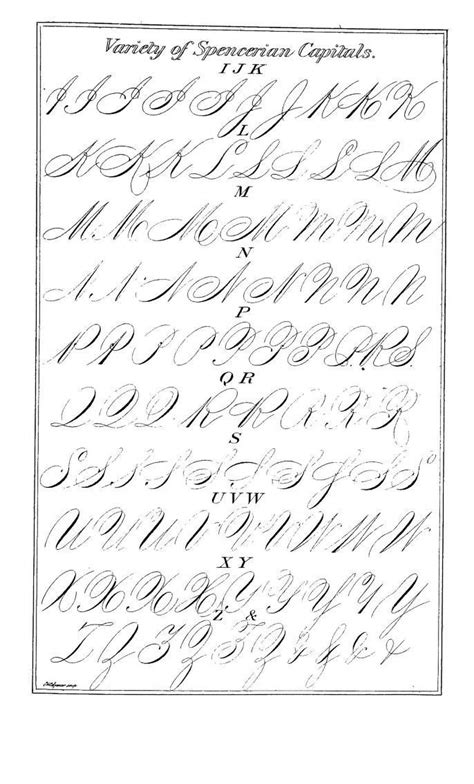 Variety of Spencerian Capitals.
I J K
I I I I I J J K K K
L
K K K L L L L L M
M
M M M M M M M
N
N N N N N N N N
P
P P P P P P P P R S
Q R
Q Q Q R R R R R
S
S S S S S S S S S S
U V W
U U U V V V W W W
X Y
X X X X Y Y Y Y Y
Z &
Z Z Z Z Z Z & & & &